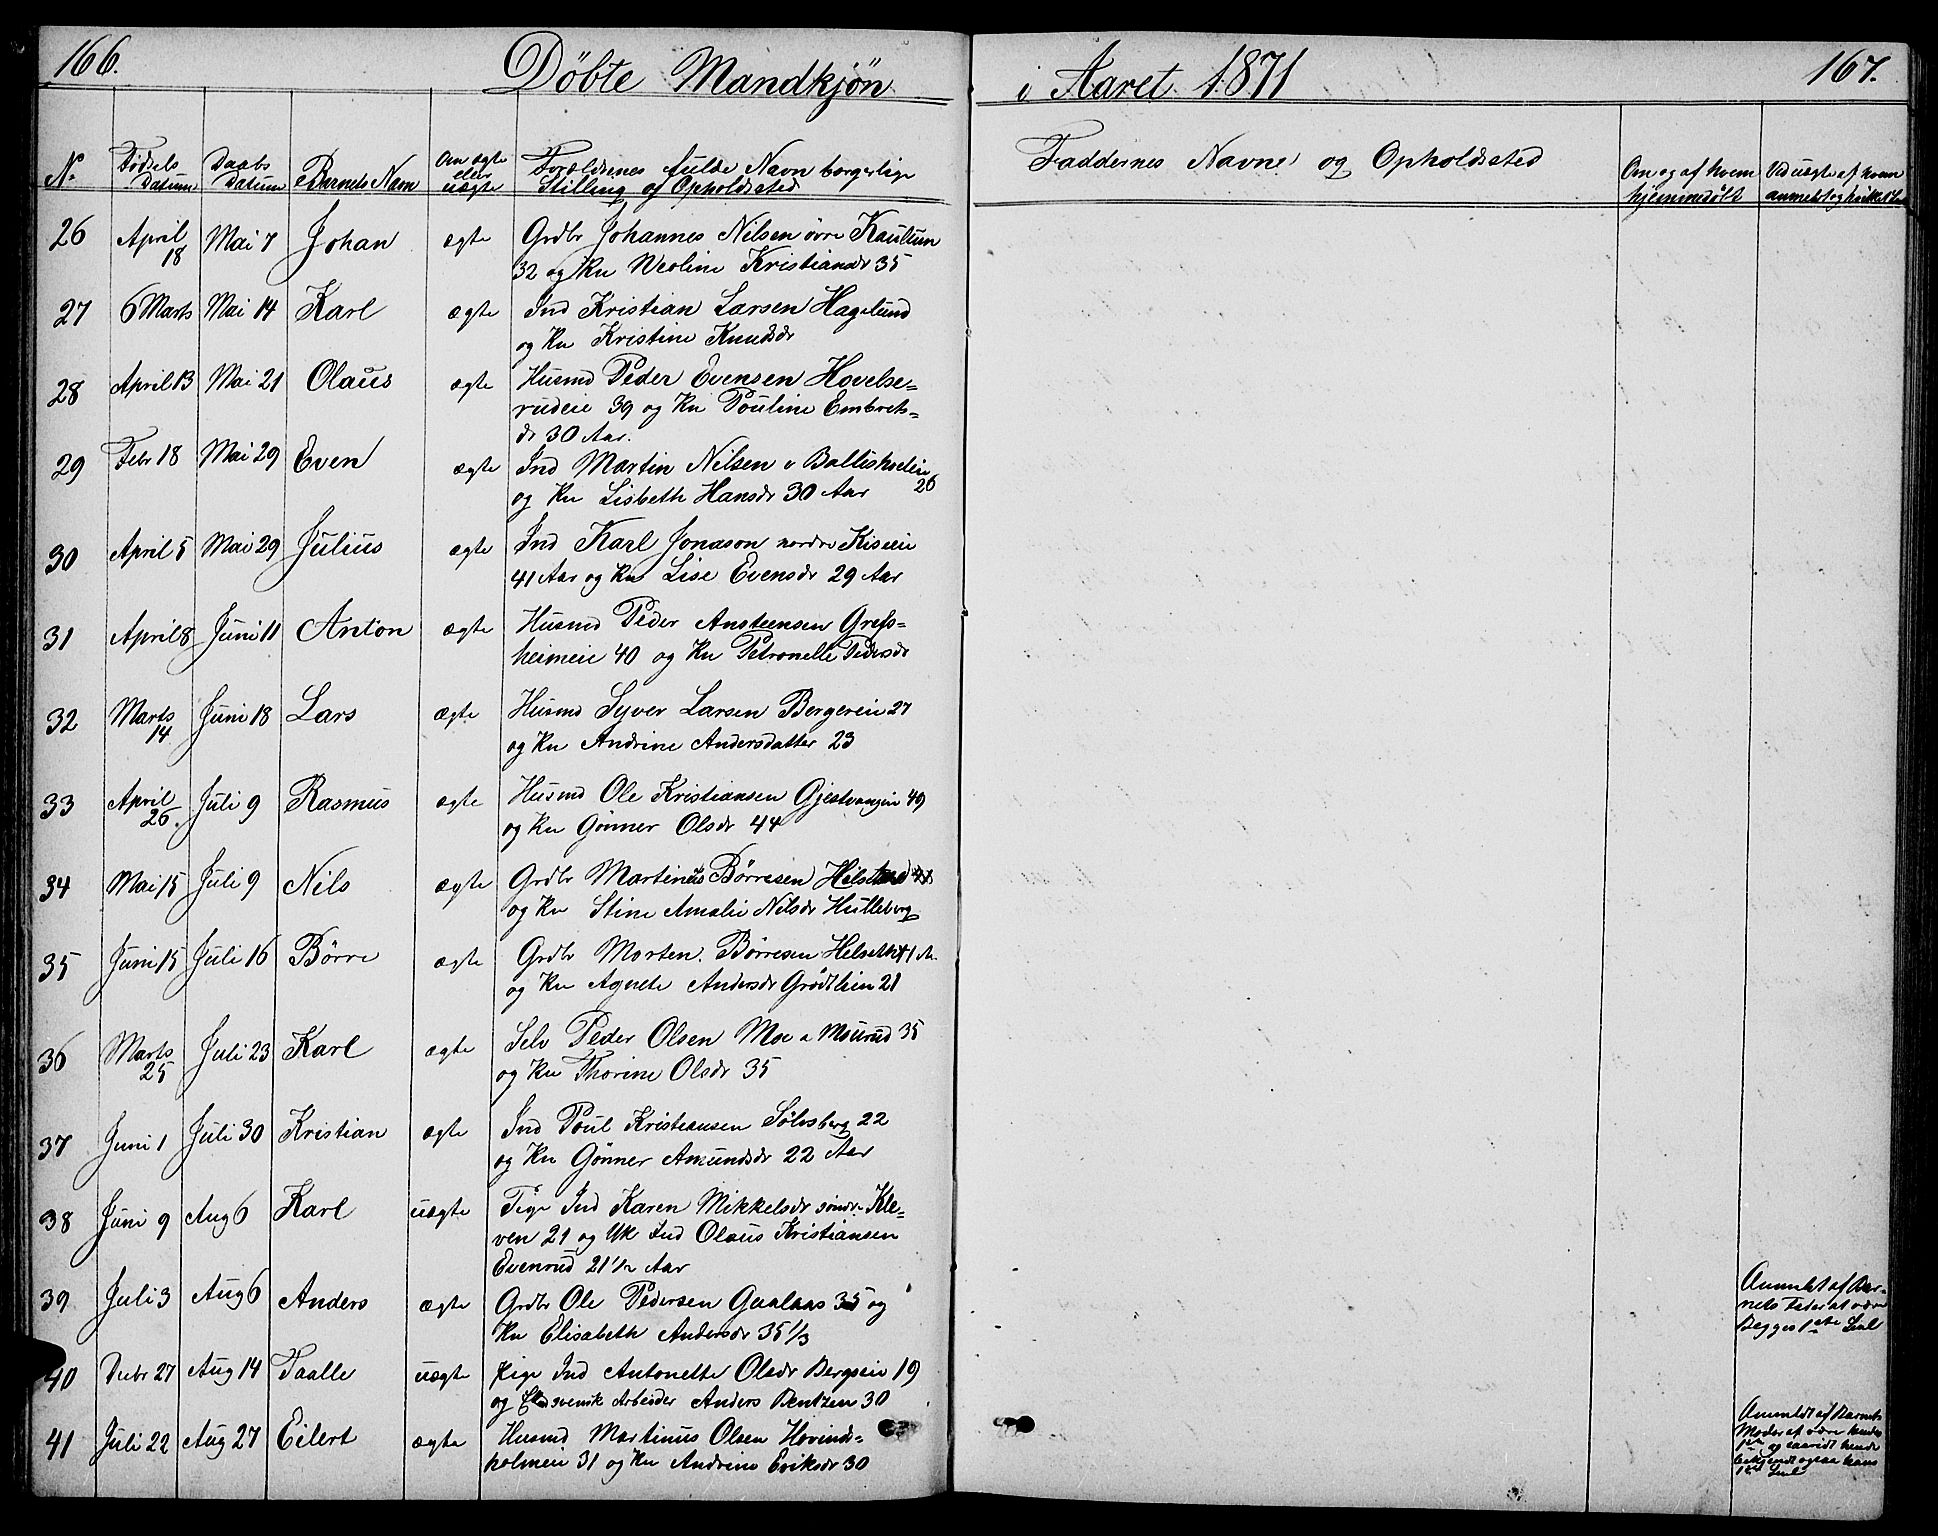 166.
Döbte Mandkjön
i Aaret 1871
167.
No Fødsels Datum Daabs Datum Barnets Navn Om ægte eler uægte Forældrenes fulde Navn borgerlige Stilling og Opholdssted
Faddernes Navne og Opholdssted Om og af hvem hjemmedöbt Ved uægte af hvem anmeldt og
26 April 18 Mai 7 Johan ægte Grdbr Johannes Nilsen övre Kaullum
32 og Kn Weoline Kristiansdr 35
27 6 Marts Mai 14 Karl ægte Ind Kristian Larsen Hagelund
og Kn Kristine Knudsdr
28 April 13 Mai 21 Olaus ægte Husmd Peder Evensen Hovelse=
rudeie 39 og Kn Pouline Embrets=
dr 30 Aar.
29 Febr 18 Mai 29 Even ægte Ind Martin Nilsen v Ballishoileie 26
og Kn Lisbeth Hansdr 30 Aar
30 April 5 Mai 29 Julius ægte Ind Karl Jonason nordre Kiseeie
41 Aar og Kn Lise Evensdr 29 Aar
31 April 8 Juni 11 Anton ægte Husmd Peder Ansteensen Grefs=
heimeie 40 og Kn Petronelle Pedersdr
32 Marts 14 Juni 18 Lars ægte Husmd Syver Larsen Bergereie 27
og Kn Andrine Andersdatter 23
33 April 26. Juli 9 Rasmus ægte Husmd Ole Kristiansen Gjestvangeie 49
og Kn Gönner Olsdr 44
34 Mai 15 Juli 9 Nils ægte Grdbr Martinus Börresen
og Kn Stine Amalie Nilsdr Hulleberg
35 Juni 15 Juli 16 Börre ægte Grdbr Morten Börresen Helseth 41 A.
og Kn Agnete Andersdr Grödtlien 21
36 Marts 25 Juli 23 Karl ægte Selv Peder Olsen Moe a Mourud 35
og Kn Thorine Olsdr 35
37 Juni 1 Juli 30 Kristian ægte Ind Poul Kristiansen Sölvsberg 22
og Kn Gönner Amundsdr 22 Aar
38 Juni 9 Aug 6 Karl uægte Pige Ind Karen Mikkelsdr söndre Kle=
ven 21 og Uk Ind Olaus Kristiansen
Evenrud 21½ Aar
39 Juli 3 Aug 6 Anders ægte Grdbr Ole Pedersen Gaalaas 35 og
Kn Elisabeth Andersdr 35 1/3
Anmeldt af Bar=
nets Fader at være
Begges 1ste Leil
40 Debr 27 Aug 14 Taalle uægte Pige Ind Antonette Olsdr Bergseie 19
og svensk Arbeider Anders Bentzen 30
41 Juli 22 Aug 27 Eilert ægte Husmd Martinus Olsen Hovinds=
holmeie 31 og Kn Andrine Eriksdr 30
Anmeldt af Barnets
Moder at være hendes
1ste og saavidt hende
bekjendt ogsaa hans
1ste Leil